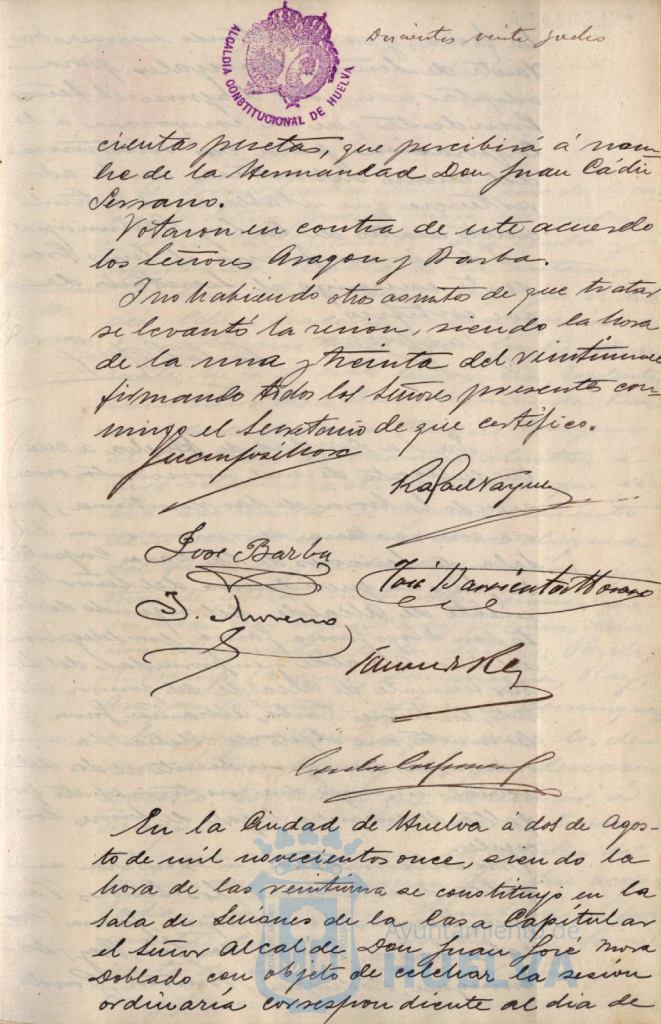 ALCALDIA CONSTITUCIONAL DE HUELVA
Doscientos veinte
cientas pesetas, que percibirá á nom-
bre de la Hermandad Don Juan Cádiz
Serrano.
Votaron en contra de este acuerdo
los Señores Aragon y Barba.
Y no habiendo otros asuntos de que tratar
se levantó la sesion, siendo la hora
de la una y treinta del veintinueve
firmando todos los Señores presentes con-
migo el Secretario de que certifico.
Juan José Mora
Rafael Vazquez
José Barba
José Barrientos Moreno
J. Moreno
En la Ciudad de Huelva á dos de Agos-
to de mil novecientos once, siendo la
hora de las veintiuna se constituyó en la
Sala de Sesiones de la Casa Capitular
el Señor Alcalde Don Juan José Mora
Doblado con objeto de celebrar la sesión
ordinaria correspondiente al dia de
Ayuntamiento de
HUELVA